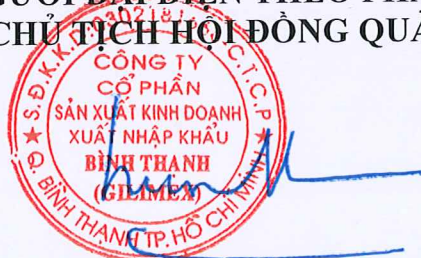 CHỦ TỊCH HỘI ĐỒNG
CÔNG TY
CỔ PHẦN
SẢN XUẤT KINH DOANH
XUẤT NHẬP KHẨU
BÌNH THẠNH
(GILIMEX)
Q. BÌNH THẠNH TP. HỒ CHÍ MINH